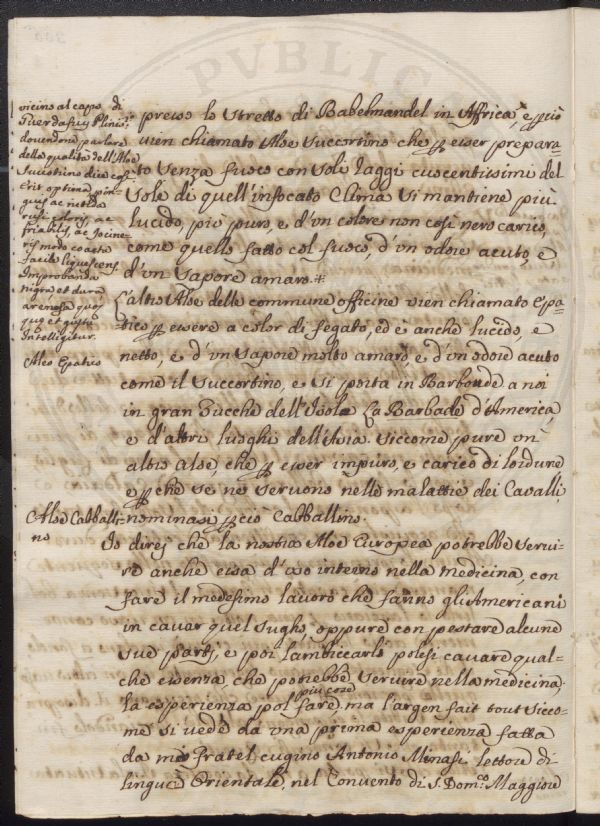 PVBLICA
vicino al capo di
Guerdafuy Plinio
dovendone parlare
della qualità dell'Aloe
Succotrino dice cosi
Erit optima pin=
guis ac nitida
rufi coloris, ac
friabilis, ac Jocine=
ris modo coacta
facile liquescens.
Improbanda
nigra et dura
arenosa quæ=
que et gustu
Intelligitur.
Aloe Epatico
Aloe Caballi=
no
presso lo Stretto di Babelmandel in Affrica, e p ciò
vien chiamato Aloe Succortino che p esser prepara=
to senza fuoco con soli raggi cuocentissimi del
Sole di quell'infocato Clima si mantiene più
lucido, più puro, e d'un colore non così nero carico,
come quello fatto col fuoco, d'un odore acuto, e
d'un sapore amaro.+
L'altro Aloe delle commune officine vien chiamato Epa=
tico p essere a color di fegato, ed è anche lucido, e
netto, e d'un sapore molto amaro, e d'un odore acuto
come il Succortino, e si porta in Barboude a noi
in gran Zucche dell'Isola La Barbade d'America,
e d'altri luoghi dell'Asia. Siccome pure un
altro Aloe, che p esser impuro, e carico di lordure
e p che se ne servono nelle malattie dei Cavalli,
nominasi p ciò Cabballino.
Io direj che la nostra Aloe Europea potrebbe servi=
re anche essa d'uso interno nella medicina, con
fare il medesimo lavoro che fanno gli Americani
in cavar quel sugho, oppure con pestare alcune
sue partj, e poi lambiccarlo potesi cavare qual=
che essenza, che potrebbe servire nella medicina.
la esperienza pol fare più cose, ma l'argen fait tout sicco=
me si vede da una prima esperienza fatta
da mio Fratel cugino Antonio Minasi lettore di
lingue Orientale, nel Convento di S. Dom.co Maggiore